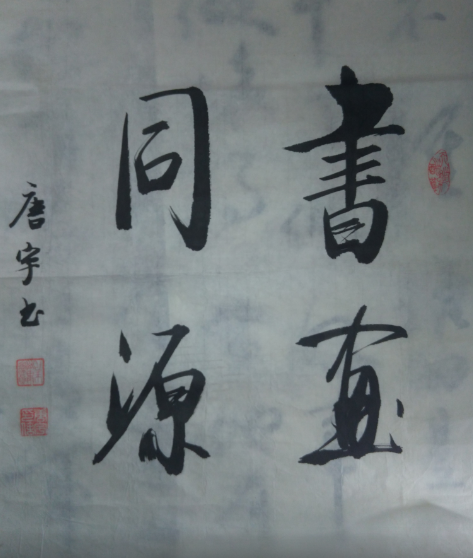 書画
同源
唐宇书